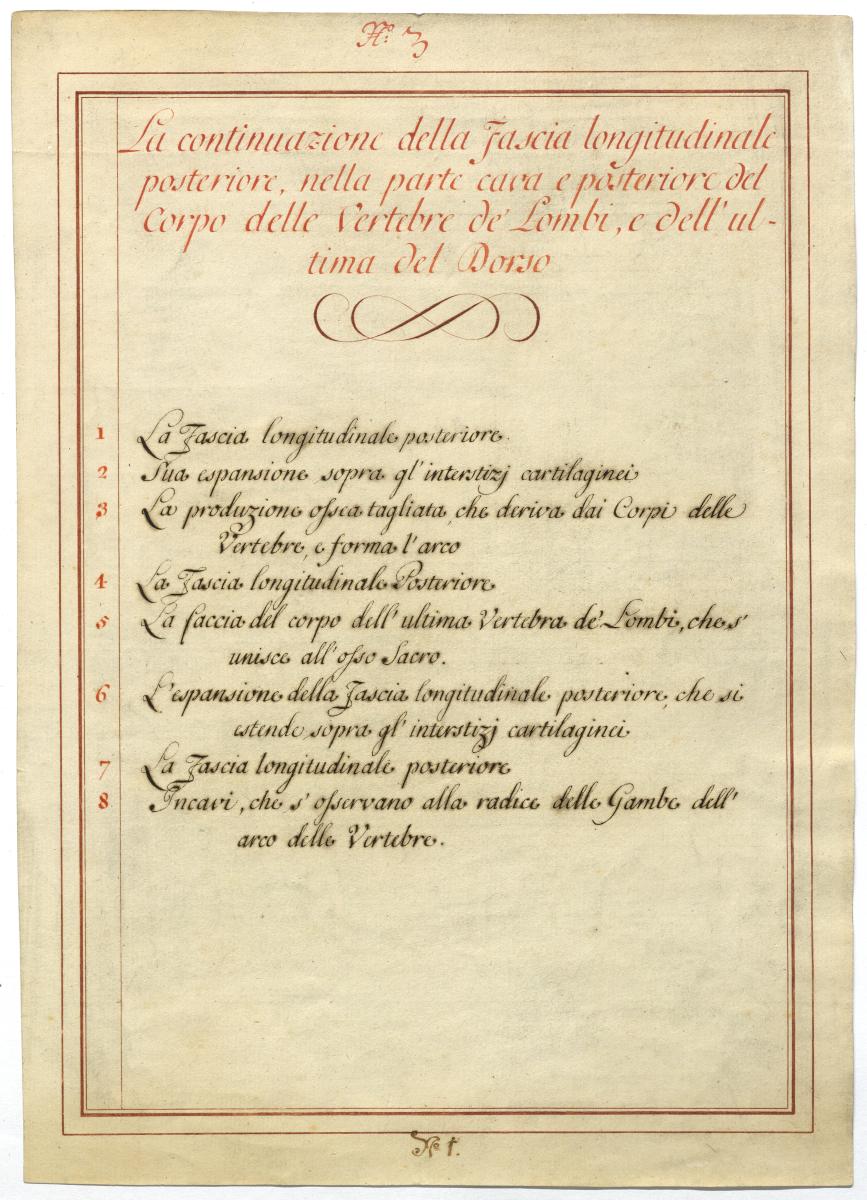 Nº 3
La continuazione della Fascia longitudinale
posteriore, nella parte cava e posteriore del
Corpo delle Vertebre de' Lombi, e dell' ul-
tima del Dorso
1 La Fascia longitudinale posteriore.
2 Sua espansione sopra gl' interstizj cartilaginei
3 La produzione ossea tagliata, che deriva dai Corpi delle
Vertebre, e forma l'arco
4 La Fascia longitudinale Posteriore
5 La faccia del corpo dell' ultima Vertebra de' Lombi, che s'
unisce all'osso Sacro.
6 L'espansione della Fascia longitudinale posteriore, che si
estende sopra gl' interstizj cartilaginei
7 La Fascia longitudinale posteriore
8 Incavi, che s' osservano alla radice delle Gambe dell'
arco delle Vertebre.
Nº 1.